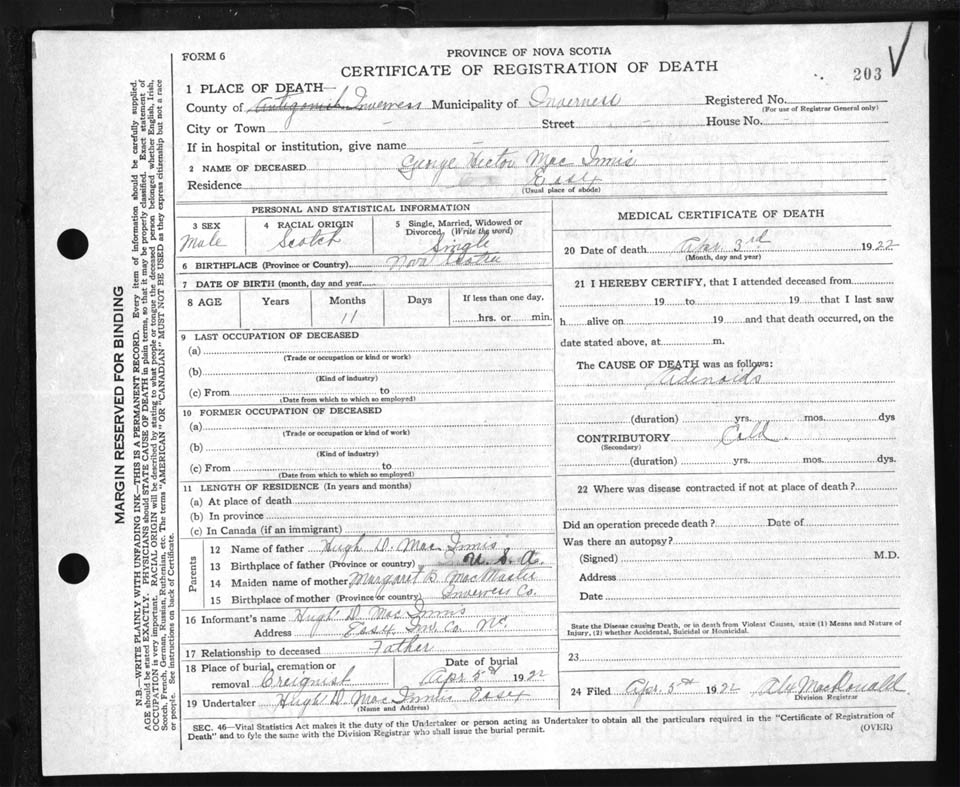 FORM 6
PROVINCE OF NOVA SCOTIA
CERTIFICATE OF REGISTRATION OF DEATH
203
1 PLACE OF DEATH—
County of Antigonish Inverness Municipality of Inverness Registered No.
(For use of Registrar General only)
City or Town - Street - House No. -
If in hospital or institution, give name -
2 NAME OF DECEASED George Hector Mac Innis
Residence Essex
(Usual place of abode)
PERSONAL AND STATISTICAL INFORMATION
3 SEX
Male
4 RACIAL ORIGIN
Scotch
5 Single, Married, Widowed or Divorced (Write the word)
Single
6 BIRTHPLACE (Province or Country) Nova Scotia
7 DATE OF BIRTH (month, day and year)
8 AGE Years Months Days If less than one day,
11 hrs. or min.
9 LAST OCCUPATION OF DECEASED
(a)
(Trade or occupation or kind or work)
(b)
(Kind of industry)
(c) From to
(Date from which to which so employed)
10 FORMER OCCUPATION OF DECEASED
(a)
(Trade or occupation or kind of work)
(b)
(Kind of industry)
(c) From to
(Date from which to which so employed)
11 LENGTH OF RESIDENCE (In years and months)
(a) At place of death
(b) In province
(c) In Canada (if an immigrant)
Parents
12 Name of father Hugh D. Mac Innis
13 Birthplace of father (Province or country) U. S. A.
14 Maiden name of mother Margaret B. MacMaster
15 Birthplace of mother (Province or country) Inverness Co.
16 Informant's name Hugh D. Mac Innis
Address Essex Inv. Co. NS.
17 Relationship to deceased Father
18 Place of burial, cremation or removal Creignish
Date of burial
Apr 5th 1922
19 Undertaker Hugh D. Mac Innis Essex
(Name and Address)
MEDICAL CERTIFICATE OF DEATH
20 Date of death Apr. 3rd 1922
(Month, day and year)
21 I HEREBY CERTIFY, that I attended deceased from
19 to 19 that I last saw
h alive on 19 and that death occurred, on the
date stated above, at m.
The CAUSE OF DEATH was as follows:
Adenoids
(duration) yrs. mos. dys
CONTRIBUTORY Cold.
(Secondary)
(duration) yrs. mos. dys.
22 Where was disease contracted if not at place of death?
Did an operation precede death? Date of
Was there an autopsy?
(Signed) M.D.
Address
Date
State the Disease causing Death, or in death from Violent Causes, state (1) Means and Nature of
Injury, (2) whether Accidental, Suicidal or Homicidal.
23
24 Filed Apr. 5th 1922 Alex MacDonald
Division Registrar
SEC. 46—Vital Statistics Act makes it the duty of the Undertaker or person acting as Undertaker to obtain all the particulars required in the "Certificate of Registration of
Death" and to fyle the same with the Division Registrar who shall issue the burial permit.
(OVER)
MARGIN RESERVED FOR BINDING
N.B.—WRITE PLAINLY WITH UNFADING INK—THIS IS A PERMANENT RECORD. Every item of information should be carefully supplied.
AGE should be stated EXACTLY. PHYSICIANS should STATE CAUSE OF DEATH in plain terms, so that it may be properly classified. Exact statement of
OCCUPATION is very important. RACIAL ORIGIN will be described by stating to what people or tongue the deceased person belonged whether English, Irish,
Scotch, French, German, Russian, Ruthenian, etc. The terms "AMERICAN" OR "CANADIAN" MUST NOT BE USED as they express citizenship but not a race
or people. See instructions on back of Certificate.